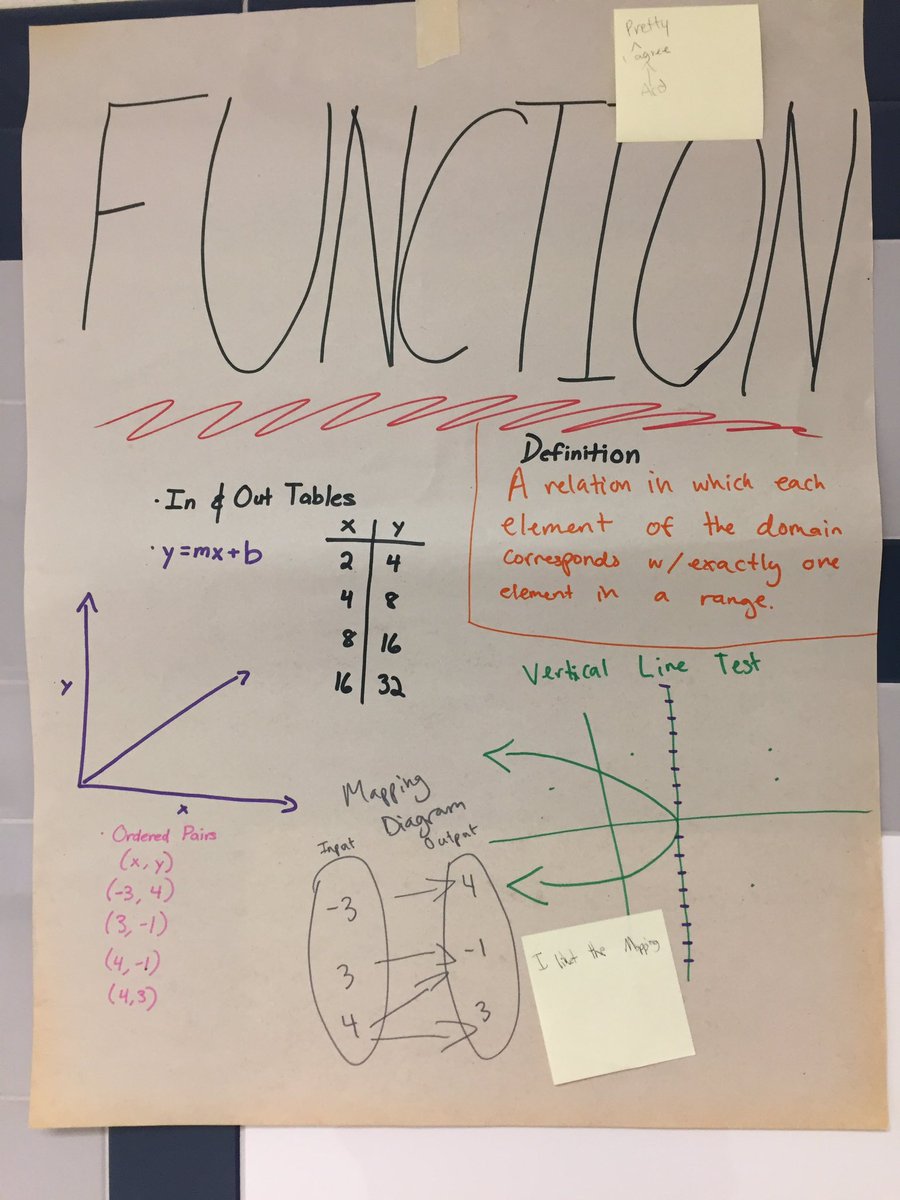 Pretty
agree
Add
FUNCTION
Definition
A relation in which each
element of the domain
corresponds w/exactly one
element in a range.
· In & Out Tables
· y=mx+b
x y
2 4
4 8
8 16
16 32
y
x
Vertical Line Test
· Ordered Pairs
(x, y)
(-3, 4)
(3, -1)
(4, -1)
(4, 3)
Mapping
Diagram
Input Output
-3 4
3 -1
4 3
I the Mapping